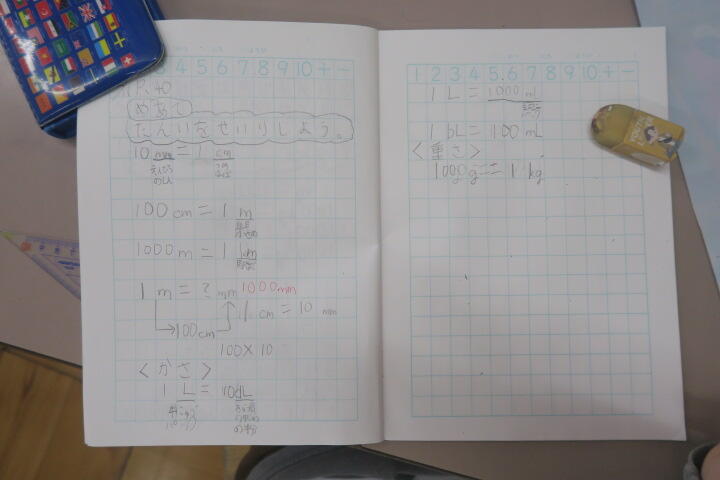 3 4 5 6 7 8 9 10 + -
P.40
めあて
たんいをせいりしよう。
10 mm = 1 cm
100 cm = 1 m
1000 m = 1 km
1 m = ? mm 1000mm
1 cm = 10 mm
100cm
100×10
<かさ>
1 L = 10dL
1 2 3 4 5 6 7 8 9 10 + -
1 L = 1000 ml
1 dL = 100 mL
<重さ>
1000g = 1 kg